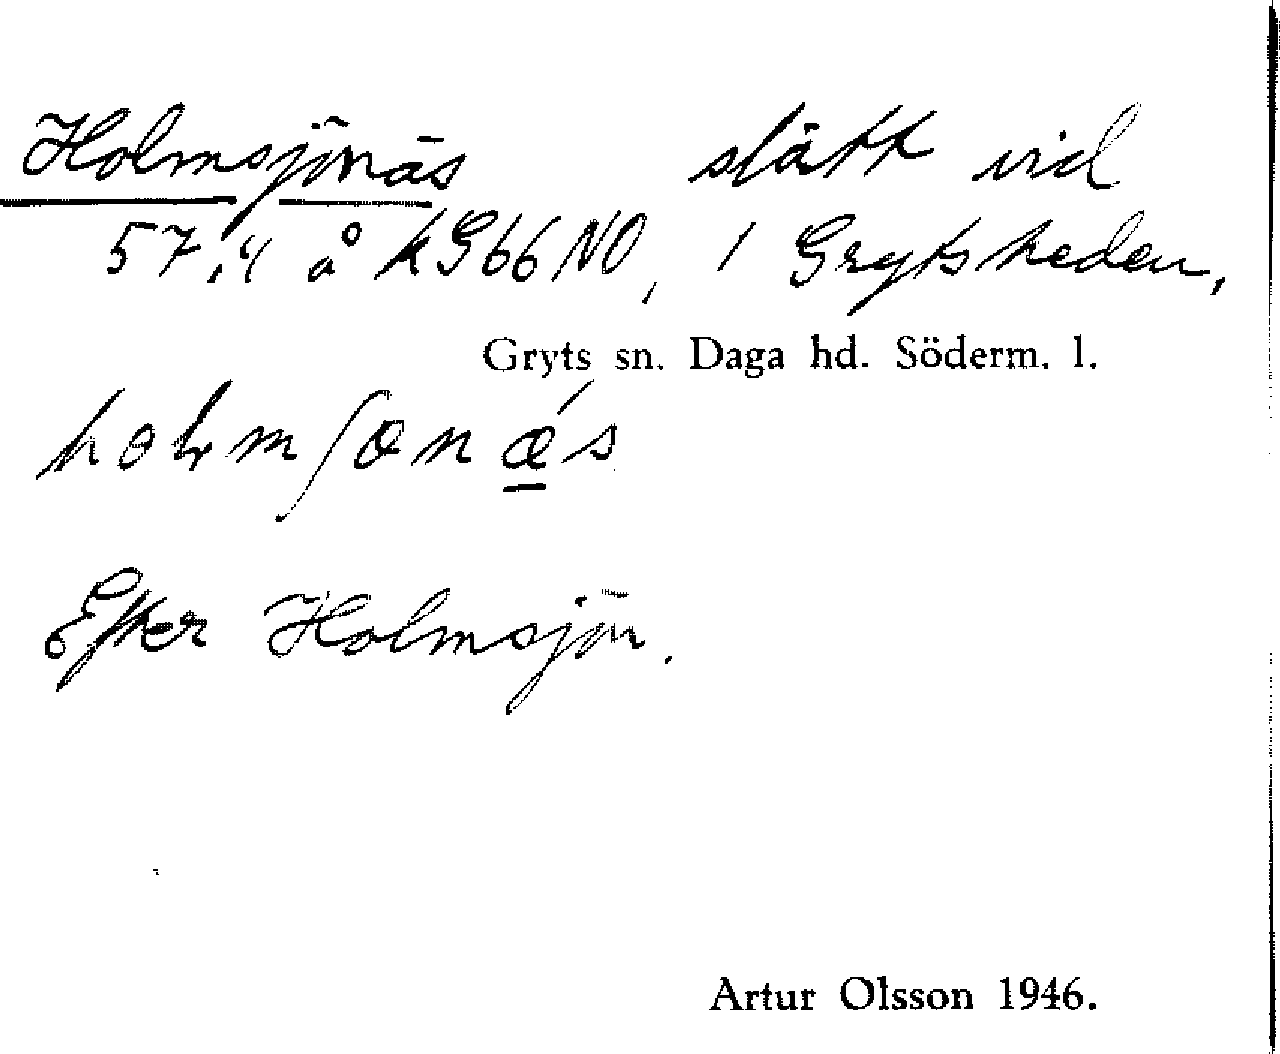 Holmsjönäs slätt vid
57:4 å kG66NO, / Grytsheden,
Gryts sn. Daga hd. Söderm. l.
Efter Holmsjön.
Artur Olsson 1946.